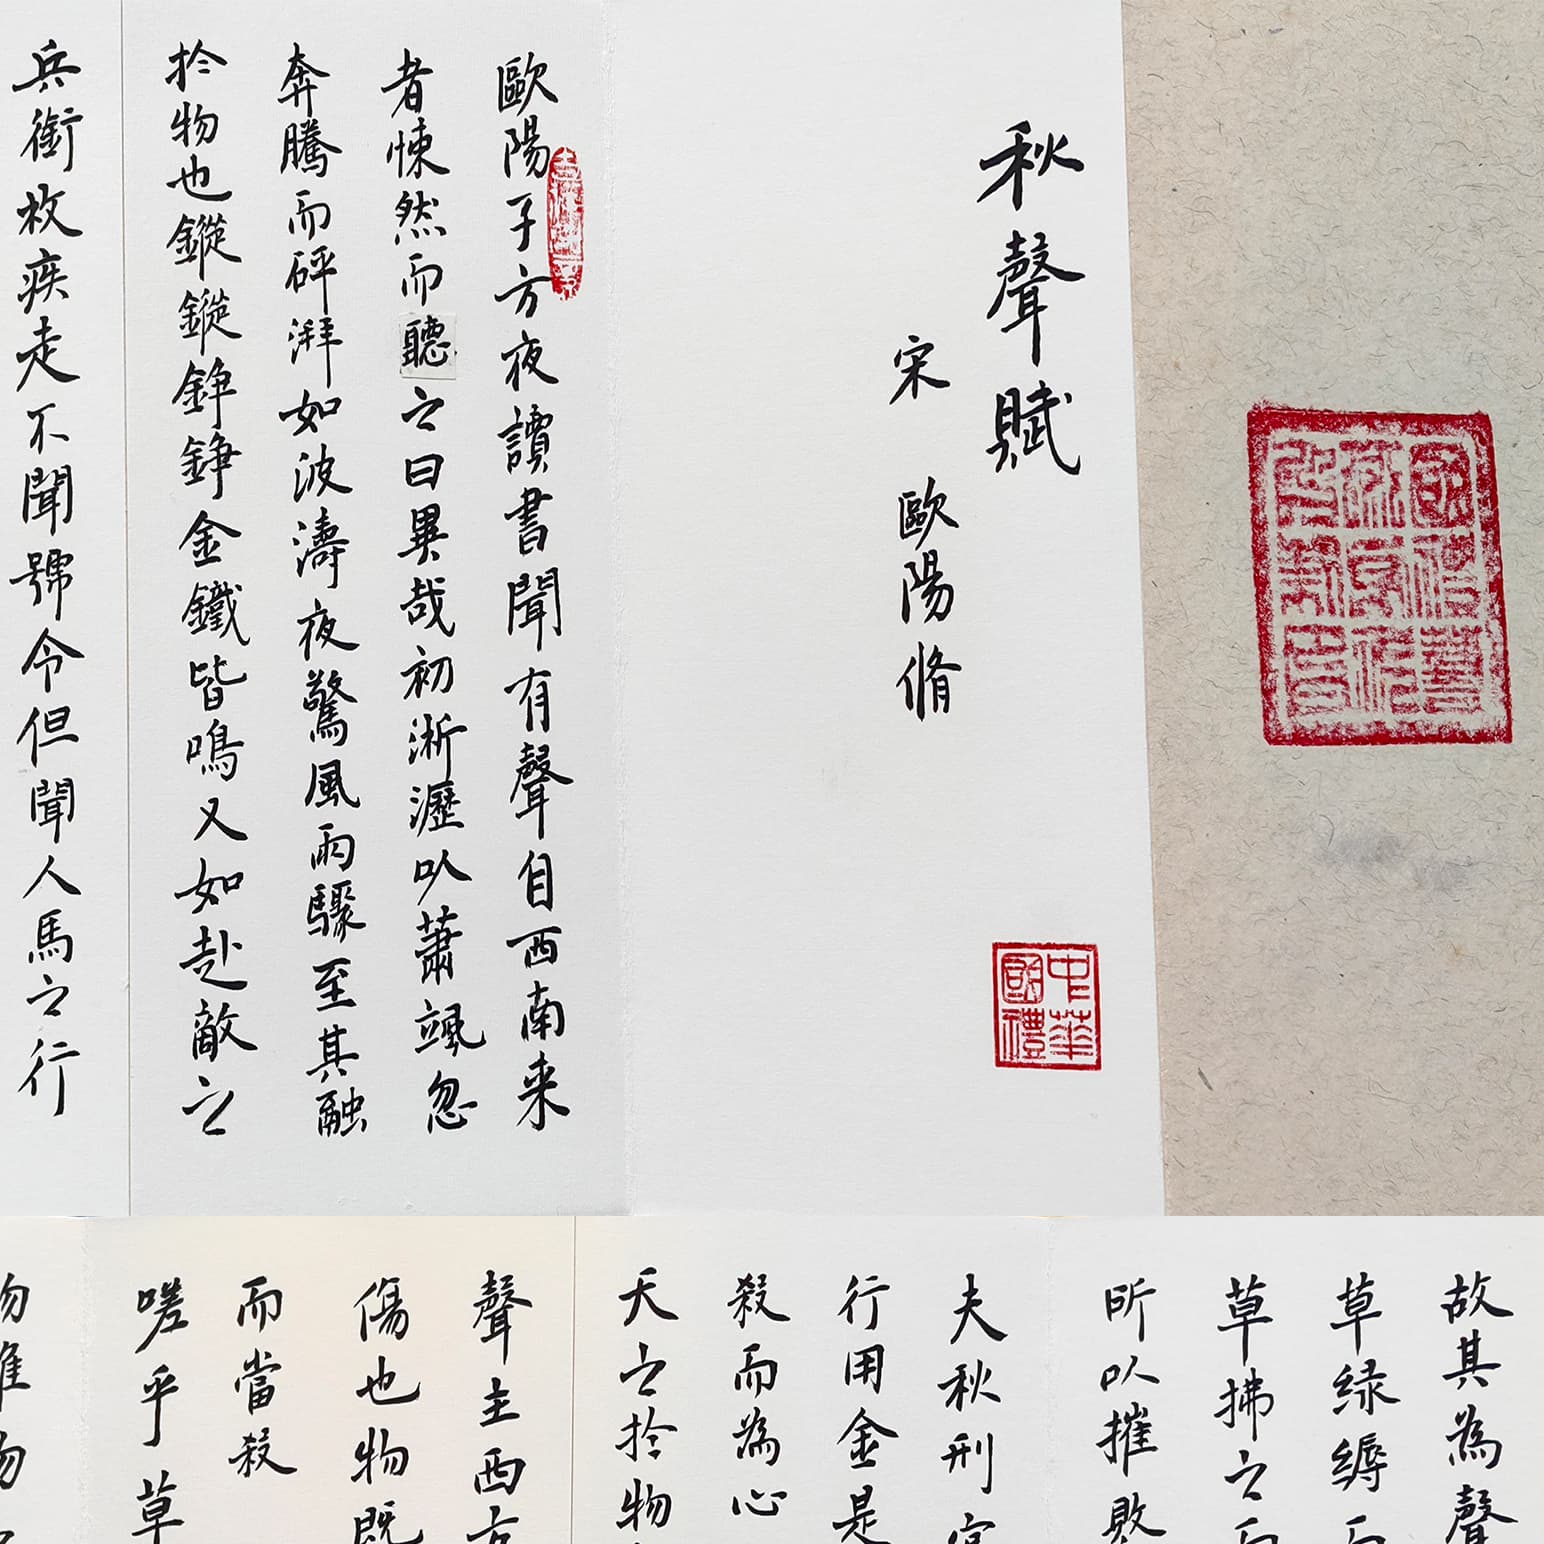 秋聲賦
宋 歐陽脩
中華國禮
歐陽子方夜讀書聞有聲自西南来
者悚然而聽之曰異哉初淅瀝以蕭颯忽
奔騰而砰湃如波濤夜驚風雨驟至其融
扵物也鏦鏦錚錚金鐵皆鳴又如赴敵之
兵銜枚疾走不聞號令但聞人馬之行
故其為聲
草緑縟而
草拂之而
所以摧敗
夫秋刑官
行用金是
殺而為心
天之扵物
聲主西方
傷也物既
而當殺
嗟乎草
物惟物